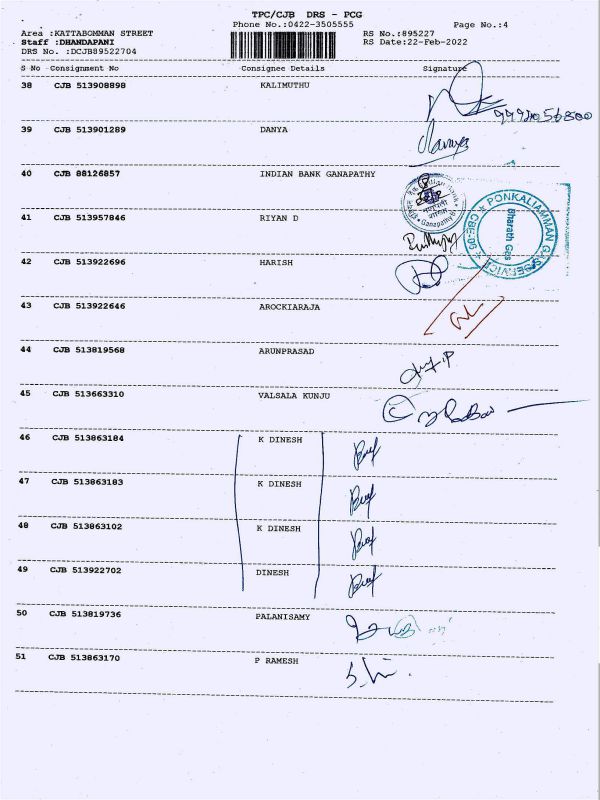 TPC/CJB DRS - PCG
Phone No.:0422-3505555 Page No.:4
Area :KATTABOMMAN STREET RS No.:895227
Staff :DHANDAPANI RS Date:22-Feb-2022
DRS No. :DCJB89522704
S No Consignment No Consignee Details Signature
38 CJB 513908898 KALIMUTHU
39 CJB 513901289 DANYA
40 CJB 88126857 INDIAN BANK GANAPATHY
41 CJB 513957846 RIYAN D
PONKALIAMMAN GAS SERVICE
Bharath Gas
CBE-06
42 CJB 513922696 HARISH
43 CJB 513922646 AROCKIARAJA
44 CJB 513819568 ARUNPRASAD
45 CJB 513663310 VALSALA KUNJU
46 CJB 513863184 K DINESH
47 CJB 513863183 K DINESH
48 CJB 513863102 K DINESH
49 CJB 513922702 DINESH
50 CJB 513819736 PALANISAMY
51 CJB 513863170 P RAMESH